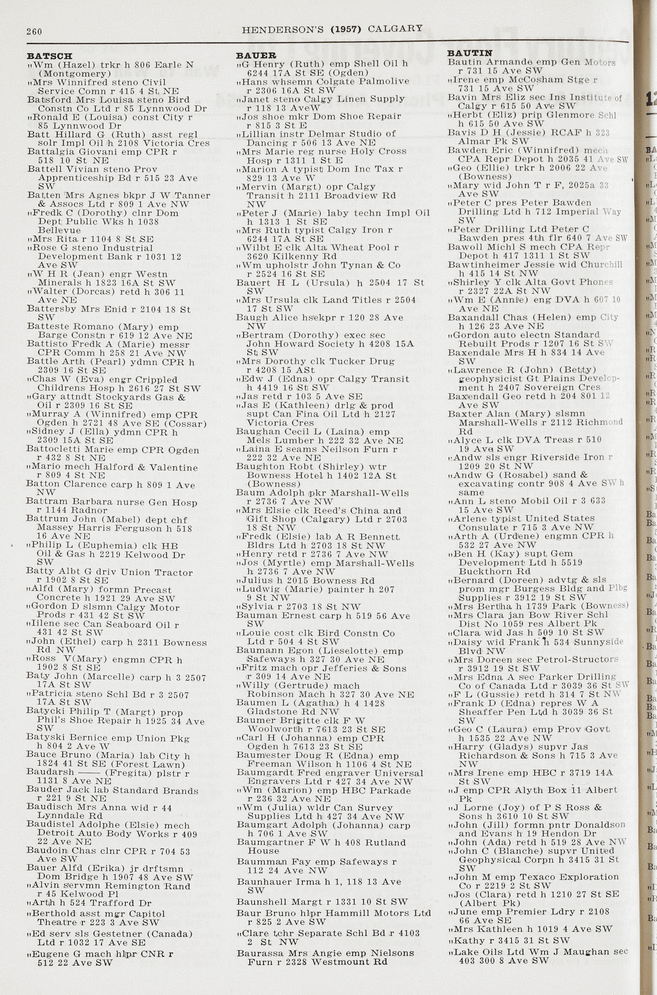 260
HENDERSON'S (1957) CALGARY
BATSCH
"Wm (Hazel) trkr h 806 Earle N
(Montgomery)
"Mrs Winnifred steno Civil
Service Comn r 415 4 St NE
Batsford Mrs Louisa steno Bird
Constn Co Ltd r 85 Lynnwood Dr
"Ronald E (Louisa) const City r
85 Lynnwood Dr
Batt Hillard G (Ruth) asst regl
solr Impl Oil h 2108 Victoria Cres
Battalgia Giovani emp CPR r
518 10 St NE
Battell Vivian steno Prov
Apprenticeship Bd r 515 23 Ave
SW
Batten Mrs Agnes bkpr J W Tanner
& Assocs Ltd r 809 1 Ave NW
"Fredk C (Dorothy) clnr Dom
Dept Public Wks h 1038
Bellevue
"Mrs Rita r 1104 8 St SE
"Rose G steno Industrial
Development Bank r 1031 12
Ave SW
"W H R (Jean) engr Westn
Minerals h 1823 16A St SW
"Walter (Dorcas) retd h 306 11
Ave NE
Battersby Mrs Enid r 2104 18 St
SW
Batteste Romano (Mary) emp
Barge Constn r 619 12 Ave NE
Battisto Fredk A (Marie) messr
CPR Comm h 258 21 Ave NW
Battle Arth (Pearl) ydmn CPR h
2309 16 St SE
"Chas W (Eva) engr Crippled
Childrens Hosp h 2616 27 St SW
"Gary attndt Stockyards Gas &
Oil r 2309 16 St SE
"Murray A (Winnifred) emp CPR
Ogden h 2721 48 Ave SE (Cossar)
"Sidney J (Ella) ydmn CPR h
2309 15A St SE
Battocletti Marie emp CPR Ogden
r 432 8 St NE
"Mario mech Halford & Valentine
r 809 4 St NE
Batton Clarence carp h 809 1 Ave
NW
Battram Barbara nurse Gen Hosp
r 1144 Radnor
Battrum John (Mabel) dept chf
Massey Harris Ferguson h 518
16 Ave NE
"Philip L (Euphemia) clk HB
Oil & Gas h 2219 Kelwood Dr
SW
Batty Albt G driv Union Tractor
r 1902 8 St SE
"Alfd (Mary) formn Precast
Concrete h 1921 29 Ave SW
"Gordon D slsmn Calgy Motor
Prods r 431 42 St SW
"Iilene secr Can Seaboard Oil r
431 42 St SW
"John (Ethel) carp h 2311 Bowness
Rd NW
"Ross V(Mary) engmn CPR h
1902 8 St SE
Baty John (Marcelle) carp h 3 2507
17A St SW
"Patricia steno Schl Bd r 3 2507
17A St SW
Batycki Philip T (Margt) prop
Phil's Shoe Repair h 1925 34 Ave
SW
Batyski Bernice emp Union Pkg
h 804 2 Ave W
Bauce Bruno (Maria) lab City h
1824 41 St SE (Forest Lawn)
Baudarsh —— (Fregita) plstr r
1131 8 Ave NE
Bauder Jack lab Standard Brands
r 221 9 St NE
Baudisch Mrs Anna wid r 44
Lynndale Rd
Baudistel Adolphe (Elsie) mech
Detroit Auto Body Works r 409
22 Ave NE
Baudoin Chas clnr CPR r 704 53
Ave SW
Bauer Alfd (Erika) jr drftsmn
Dom Bridge h 1907 48 Ave SW
"Alvin servmn Remington Rand
r 45 Kelwood Pl
"Arth h 524 Trafford Dr
"Berthold asst mgr Capitol
Theatre r 223 3 Ave SW
"Ed serv sls Gestetner (Canada)
Ltd r 1032 17 Ave SE
"Eugene G mach hlpr CNR r
512 22 Ave SW
BAUER
"G Henry (Ruth) emp Shell Oil h
6244 17A St SE (Ogden)
"Hans whsemn Colgate Palmolive
r 2306 16A St SW
"Janet steno Calgy Linen Supply
r 118 13 AveW
"Jos shoe mkr Dom Shoe Repair
r 815 3 St E
"Lillian instr Delmar Studio of
Dancing r 506 13 Ave NE
"Mrs Marie reg nurse Holy Cross
Hosp r 1311 1 St E
"Marion A typist Dom Inc Tax r
829 13 Ave W
"Mervin (Margt) opr Calgy
Transit h 2111 Broadview Rd
NW
"Peter J (Marie) laby techn Impl Oil
h 1313 1 St SE
"Mrs Ruth typist Calgy Iron r
6244 17A St SE
"Wilbt E clk Alta Wheat Pool r
3620 Kilkenny Rd
"Wm upholstr John Tynan & Co
r 2524 16 St SE
Bauert H L (Ursula) h 2504 17 St
SW
"Mrs Ursula clk Land Titles r 2504
17 St SW
Baugh Alice hsekpr r 120 28 Ave
NW
"Bertram (Dorothy) exec sec
John Howard Society h 4208 15A
St SW
"Mrs Dorothy clk Tucker Drug
r 4208 15 ASt
"Edw J (Edna) opr Calgy Transit
h 4419 16 St SW
"Jas retd r 103 5 Ave SE
"Jas E (Kathleen) drlg & prod
supt Can Fina Oil Ltd h 2127
Victoria Cres
Baughan Cecil L (Laina) emp
Mels Lumber h 222 32 Ave NE
"Laina E seams Neilson Furn r
222 32 Ave NE
Baughton Robt (Shirley) wtr
Bowness Hotel h 1402 12A St
(Bowness)
Baum Adolph pkr Marshall-Wells
r 2736 7 Ave NW
"Mrs Elsie clk Reed's China and
Gift Shop (Calgary) Ltd r 2703
18 St NW
"Fredk (Elsie) lab A R Bennett
Bldrs Ltd h 2703 18 St NW
"Henry retd r 2736 7 Ave NW
"Jos (Myrtle) emp Marshall-Wells
h 2736 7 Ave NW
"Julius h 2015 Bowness Rd
"Ludwig (Marie) painter h 207
9 St NW
"Sylvia r 2703 18 St NW
Bauman Ernest carp h 519 56 Ave
SW
"Louie cost clk Bird Constn Co
Ltd r 504 4 St SW
Baumann Egon (Lieselotte) emp
Safeways h 327 30 Ave NE
"Fritz mach opr Jefferies & Sons
r 309 14 Ave NE
"Willy (Gertrude) mach
Robinson Mach h 327 30 Ave NE
Baumen L (Agatha) h 4 1428
Gladstone Rd NW
Baumer Brigitte clk F W
Woolworth r 7613 23 St SE
"Carl H (Johanna) emp CPR
Ogden h 7613 23 St SE
Baumester Doug R (Edna) emp
Freeman Wilson h 1106 4 St NE
Baumgardt Fred engraver Universal
Engravers Ltd r 427 34 Ave NW
"Wm (Marion) emp HBC Parkade
r 236 32 Ave NE
"Wm (Julia) wldr Can Survey
Supplies Ltd h 427 34 Ave NW
Baumgart Adolph (Johanna) carp
h 706 1 Ave SW
Baumgartner F W h 408 Rutland
House
Baumman Fay emp Safeways r
112 24 Ave NW
Baunhauer Irma h 1, 118 13 Ave
SW
Baunshell Margt r 1331 10 St SW
Baur Bruno hlpr Hammill Motors Ltd
r 825 2 Ave SW
"Clare tchr Separate Schl Bd r 4103
2 St NW
Baurassa Mrs Angie emp Nielsons
Furn r 2328 Westmount Rd
BAUTIN
Bautin Armande emp Gen Motors
r 731 15 Ave SW
"Irene emp McCosham Stge r
731 15 Ave SW
Bavin Mrs Eliz sec Ins Institute of
Calgy r 615 50 Ave SW
"Herbt (Eliz) prip Glenmore Schl
h 615 50 Ave SW
Bavis D H (Jessie) RCAF h 323
Almar Pk SW
Bawden Eric (Winnifred) mech
CPA Repr Depot h 2035 41 Ave SW
"Geo (Ellie) trkr h 2006 22 Ave
(Bowness)
"Mary wid John T r F, 2025a 33
Ave SW
"Peter C pres Peter Bawden
Drilling Ltd h 712 Imperial Way
SW
"Peter Drilling Ltd Peter C
Bawden pres 4th flr 640 7 Ave SW
Bawoll Michl S mech CPA Repr
Depot h 417 1311 1 St SW
Bawtinheimer Jessie wid Churchill
h 415 14 St NW
"Shirley Y clk Alta Govt Phones
r 2327 22A St NW
"Wm E (Annie) eng DVA h 607 10
Ave NE
Baxandall Chas (Helen) emp City
h 126 23 Ave NE
"Gordon auto electn Standard
Rebuilt Prods r 1207 16 St SW
Baxendale Mrs H h 834 14 Ave
SW
"Lawrence R (John) (Betty)
geophysicist Gt Plains Develop-
ment h 2407 Sovereign Cres
Baxendall Geo retd h 204 801 12
Ave SW
Baxter Alan (Mary) slsmn
Marshall-Wells r 2112 Richmond
Rd
"Alyce L clk DVA Treas r 510
19 Ave SW
"Andw sls engr Riverside Iron r
1209 20 St NW
"Andw G (Rosabel) sand &
excavating contr 908 4 Ave SW h
same
"Ann L steno Mobil Oil r 3 633
15 Ave SW
"Arlene typist United States
Consulate r 715 3 Ave NW
"Arth A (Urdene) engmn CPR h
532 27 Ave NW
"Ben H (Kay) supt Gem
Development Ltd h 5519
Buckthorn Rd
"Bernard (Doreen) advtg & sls
prom mgr Burgess Bldg and Plbg
Supplies r 3912 19 St SW
"Mrs Bertha h 1739 Park (Bowness)
"Mrs Clara jan Bow River Schl
Dist No 1059 res Albert Pk
"Clara wid Jas h 509 10 St SW
"Daisy wid Frank h 534 Sunnyside
Blvd NW
"Mrs Doreen sec Petrol-Structors
r 3912 19 St SW
"Mrs Edna A sec Parker Drilling
Co of Canada Ltd r 3039 36 St SW
"F L (Gussie) retd h 314 7 St NW
"Frank D (Edna) repres W A
Sheaffer Pen Ltd h 3039 36 St
SW
"Geo C (Laura) emp Prov Govt
h 1535 22 Ave NW
"Harry (Gladys) supvr Jas
Richardson & Sons h 715 3 Ave
NW
"Mrs Irene emp HBC r 3719 14A
St SW
"J emp CPR Alyth Box 11 Albert
Pk
"J Lorne (Joy) of P S Ross &
Sons h 3610 10 St SW
"John (Jill) formn pntr Donaldson
and Evans h 19 Hendon Dr
"John (Ada) retd h 519 28 Ave NW
"John C (Blanche) supvr United
Geophysical Corpn h 3415 31 St
SW
"John M emp Texaco Exploration
Co r 2219 2 St SW
"Jos (Clara) retd h 1210 27 St SE
(Albert Pk)
"June emp Premier Ldry r 2108
66 Ave SE
"Mrs Kathleen h 1019 4 Ave SW
"Kathy r 3415 31 St SW
"Lake Oils Ltd Wm J Maughan sec
403 300 8 Ave SW